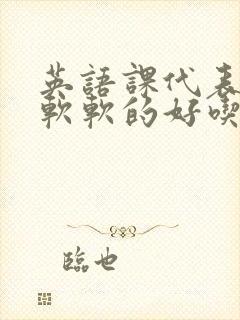 英語課代表
軟軟的好喫
臨也